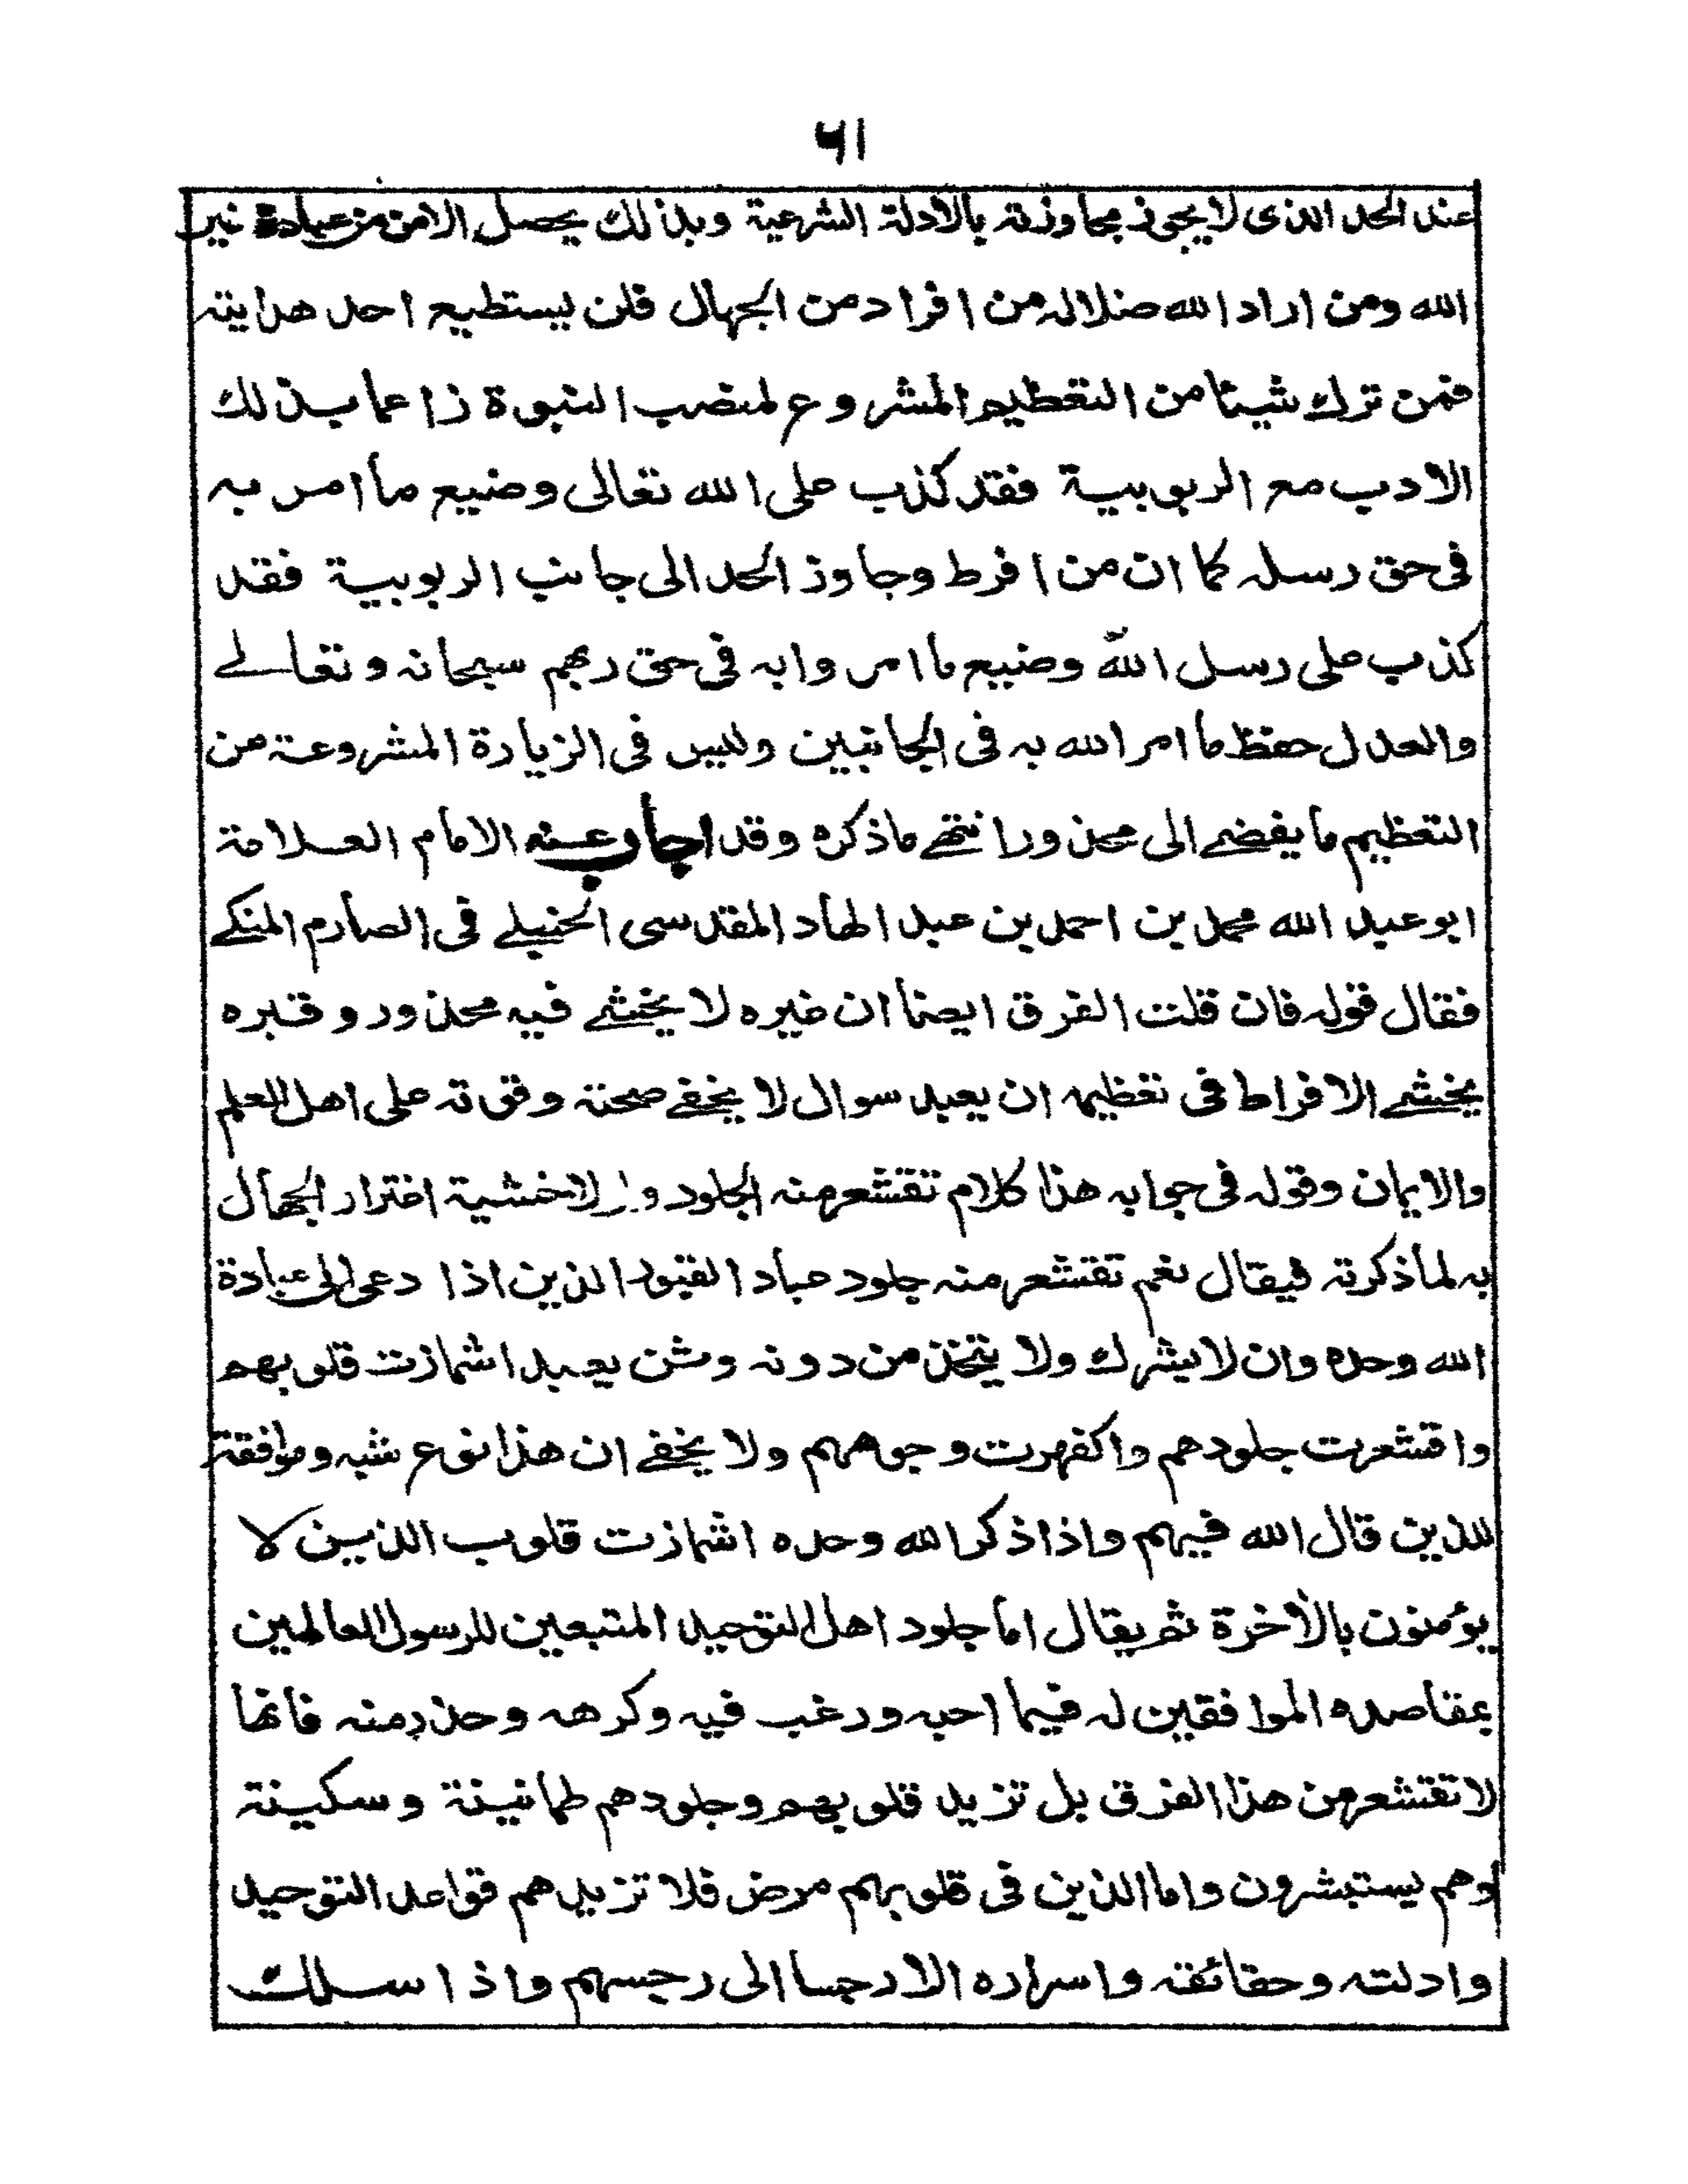 ۶۱
عند الحد الذى لا يجوز مجاوزته بالادلة الشرعية وبذالك يحصل الامن من عبادة غير
الله ومن اراد الله ضلاله من افراد من الجهال فلن يستطيع احد هدايته
فمن ترك شيئا من التعظيم المشروع لمنصب النبوة زاعما بذلك
الادب مع الربوبية فقد كذب على الله تعالى وضيع ما امر به
فى حق رسله كما ان من افرط وجاوز الحد الى جانب الربوبية فقد
كذب على رسل الله وضيع ما امروا به فى حق ربهم سبحانه وتعالے
والعدل حفظ ما امر الله به فى الجانبين وليس فى الزيارة المشروعة من
التعظيم ما يفضے الى محذور انتهے ماذكره وقد اجاب عنه الامام العلامة
ابو عبد الله محمد بن احمد بن عبد الهاد المقدسى الحنبلے فى الصارم المنكے
فقال قوله فان قلت الفرق ايضا ان غيره لا يخشے فيه محذور وقبره
يخشے الافراط فى تعظيمه ان يعبد سوال لا يخفے صحته وقوته على اهل العلم
والايمان وقوله فى جوابه هذا كلام تقشعر منه الجلود و لا خشية اغترار الجهال
به لماذكرته فيقال نعم تقشعر منه جلود عباد القبور الذين اذا دعى الى عبادة
الله وحده وان لا يشرك ولا يتخذ من دونه وثن يعبد اشمازت قلوبهم
واقشعرت جلودهم واكفهرت وجوههم ولا يخفے ان هذا نوع شبه وموافقة
للذين قال الله فيهم واذا ذكر الله وحده اشمازت قلوب الذين لا
يؤمنون بالأخرة ثم يقال اما جلود اهل التوحيد المتبعين للرسول العالمين
بمقاصده الموافقين له فيما احبه ورغب فيه وكرهه وحذر منه فانها
لا تقشعر من هذا الفرق بل تزيد قلوبهم وجلودهم طمانينة وسكينة
وهم يستبشرون واما الذين فى قلوبهم مرض فلا تزيدهم قواعد التوحيد
وادلته وحقائقه واسراره الا رجسا الى رجسهم واذا سلك